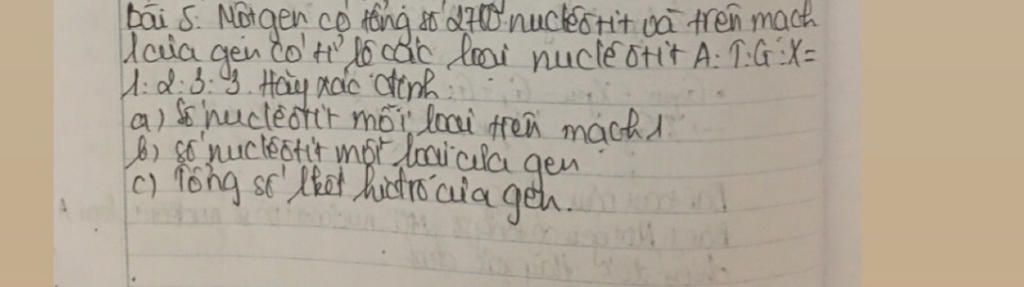 bài 5: Một gen có tổng số 2700 nuclêôtit và trên mạch
1 của gen có tỉ lệ các loại nuclêôtit A:T:G:X=
1:2:3:3. Hãy xác định:
a) Số nuclêôtit mỗi loại trên mạch 1
b) số nuclêôtit mỗi loại của gen
c) Tổng số lkết hiđrô của gen.